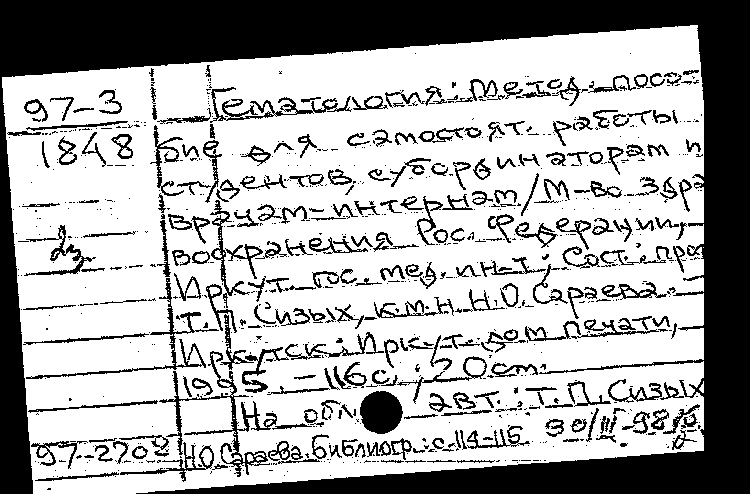 97-3 Гематология: Метод. посо-
1848 бие для самостоят. работы
студентов, субординаторам и
врачам-интернам/М-во здра
воохранения Рос. Федерации,
Иркут. гос. мед. ин-т; Сост.: проф
Т.П. Сизых, к.м.н. Н.О. Сараева. -
Иркутск: Иркут. дом печати,
1995. - 116с.; 20см.
На обл. /авт.: Т.П. Сизых
97-2702 Н.О. Сараева. Библиогр.: с.114-116 30/III-98